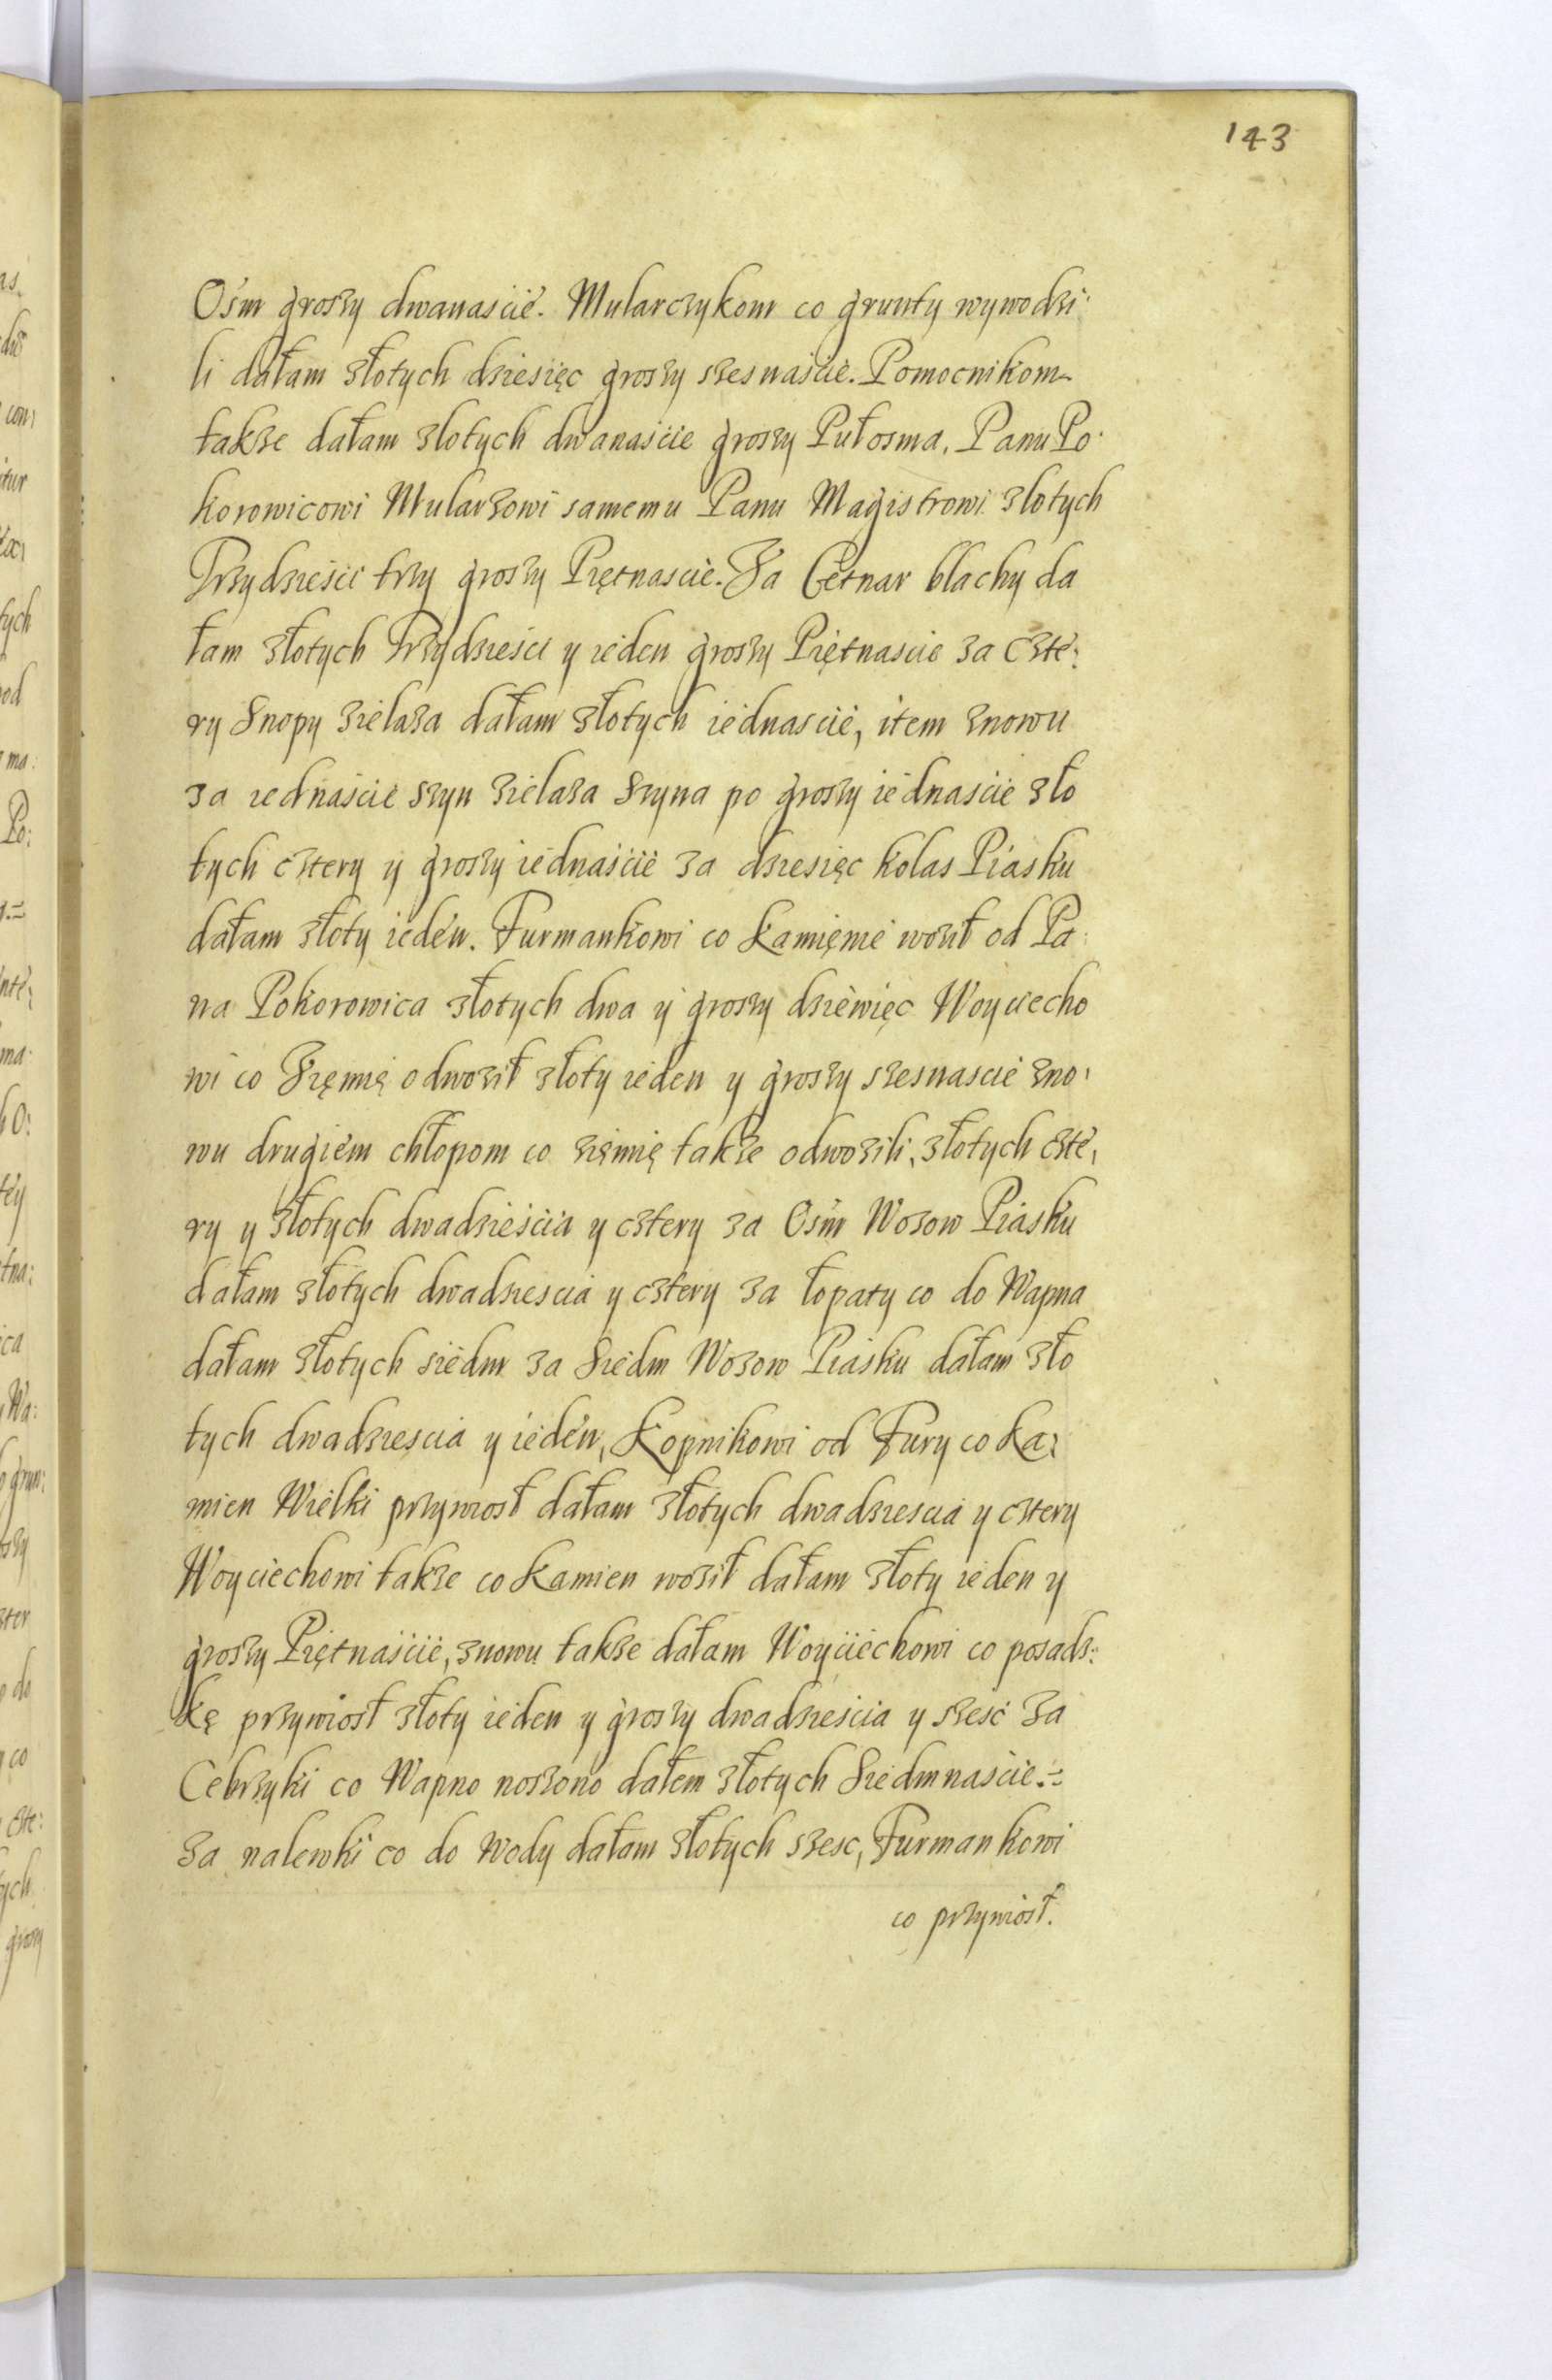 143
Ośm groszy dwanascie. Mularczykom co grunty wywodzi
li dałam złotych dziesięc groszy szesnaście. Pomocnikom
takze dałam zlotych dwanascie groszy Pułosma, Panu Po
korowicowi Mularzowi samemu Panu Magistrowi zlotych
Trzydzieści trzy groszy Piętnascie. Za Cetnar blachy da
łam złotych Trzydziesci y ieden groszy Piętnascie za czte:
ry Snopy zielaza dałam złotych iednascie, item znowu
za iednaście szyn zielaza Szyna po groszy iednaście zło
tych cztery y groszy iednaście za dziesięc kolas Piasku
dałam złoty ieden. Furmankowi co kamięnie woził od Pa
na Pokorowica złotych dwa y groszy dziewięc Woyciecho
wi co Zięmię odwoził złoty ieden y groszy szesnascie zno
wu drugiem chłopom co zięmię takze odwozili, złotych czte,
ry y złotych dwadzieścia y cztery za Ośm Wozow Piasku
dałam złotych dwadziescia y cztery za łopaty co do Wapna
dałam złotych siedm za Siedm Wozow Piasku dałam zło
tych dwadziescia y ieden, Kopnikowi od Fury co Ka:
mien Wielki przywiosł dałam złotych dwadziescia y cztery
Woyciechowi takze co Kamien woził dałam złoty ieden y
groszy Piętnaście, znowu takze dałam Woyciechowi co posadz:
kę przywiosł złoty ieden y groszy dwadzieścia y szesć Za
Cebrzyki co Wapno noszono dałem złotych Siedmnaście.=
Za nalewki co do Wody dałam złotych szesc, Furmankowi
co przywiosł.